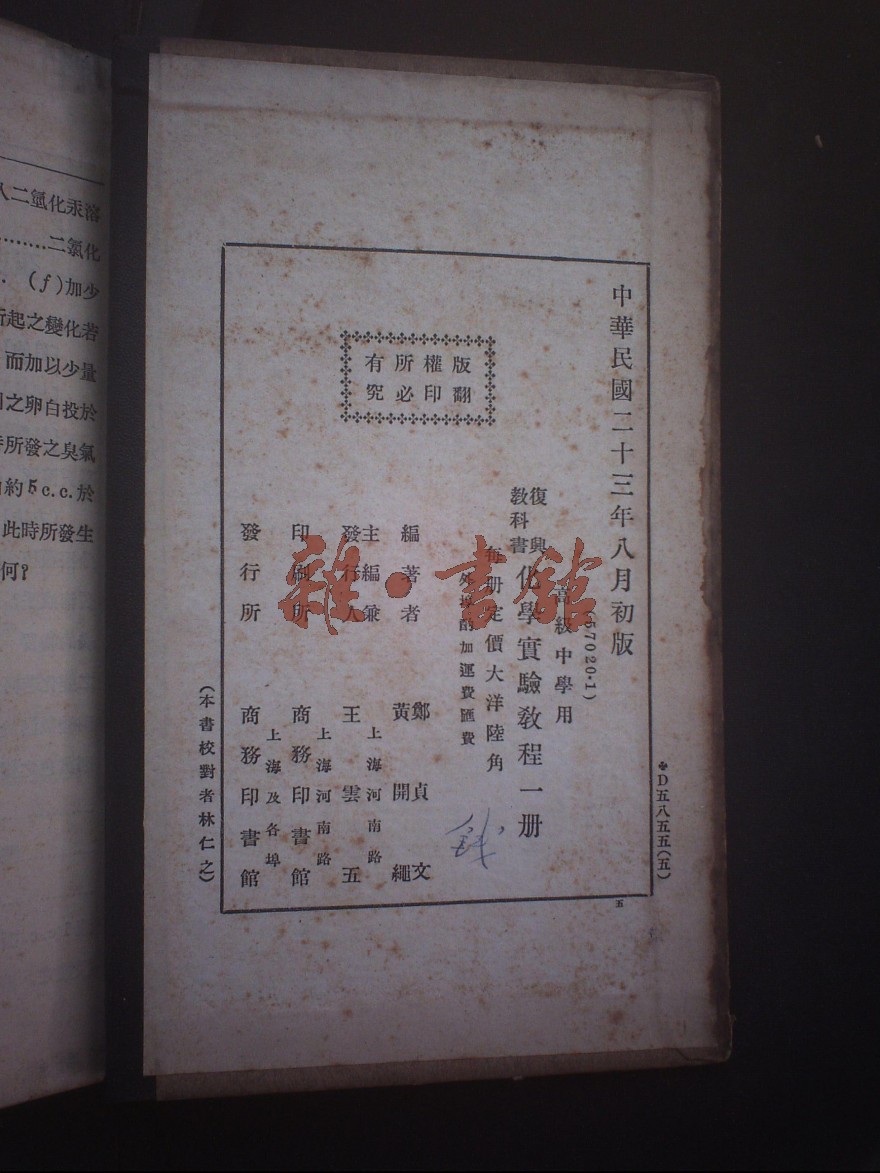 中華民國二十三年八月初版
❖D五八五五(五)
(57020·1)
高級中學用
復興
教科書
化學實驗教程一册
每册定價大洋陸角
外埠酌加運費匯費
版權所有
翻印必究
編著者
鄭貞文
黃開繩
主編兼
發行人
王雲五
上海河南路
印刷所
商務印書館
上海河南路
發行所
商務印書館
上海及各埠
(本書校對者林仁之)
五
雜·書館
入二氫化汞溶
………二氯化
. (f)加少
所起之變化若
而加以少量
之卵白投於
所發之臭氣
約5c.c.於
此時所發生
何?